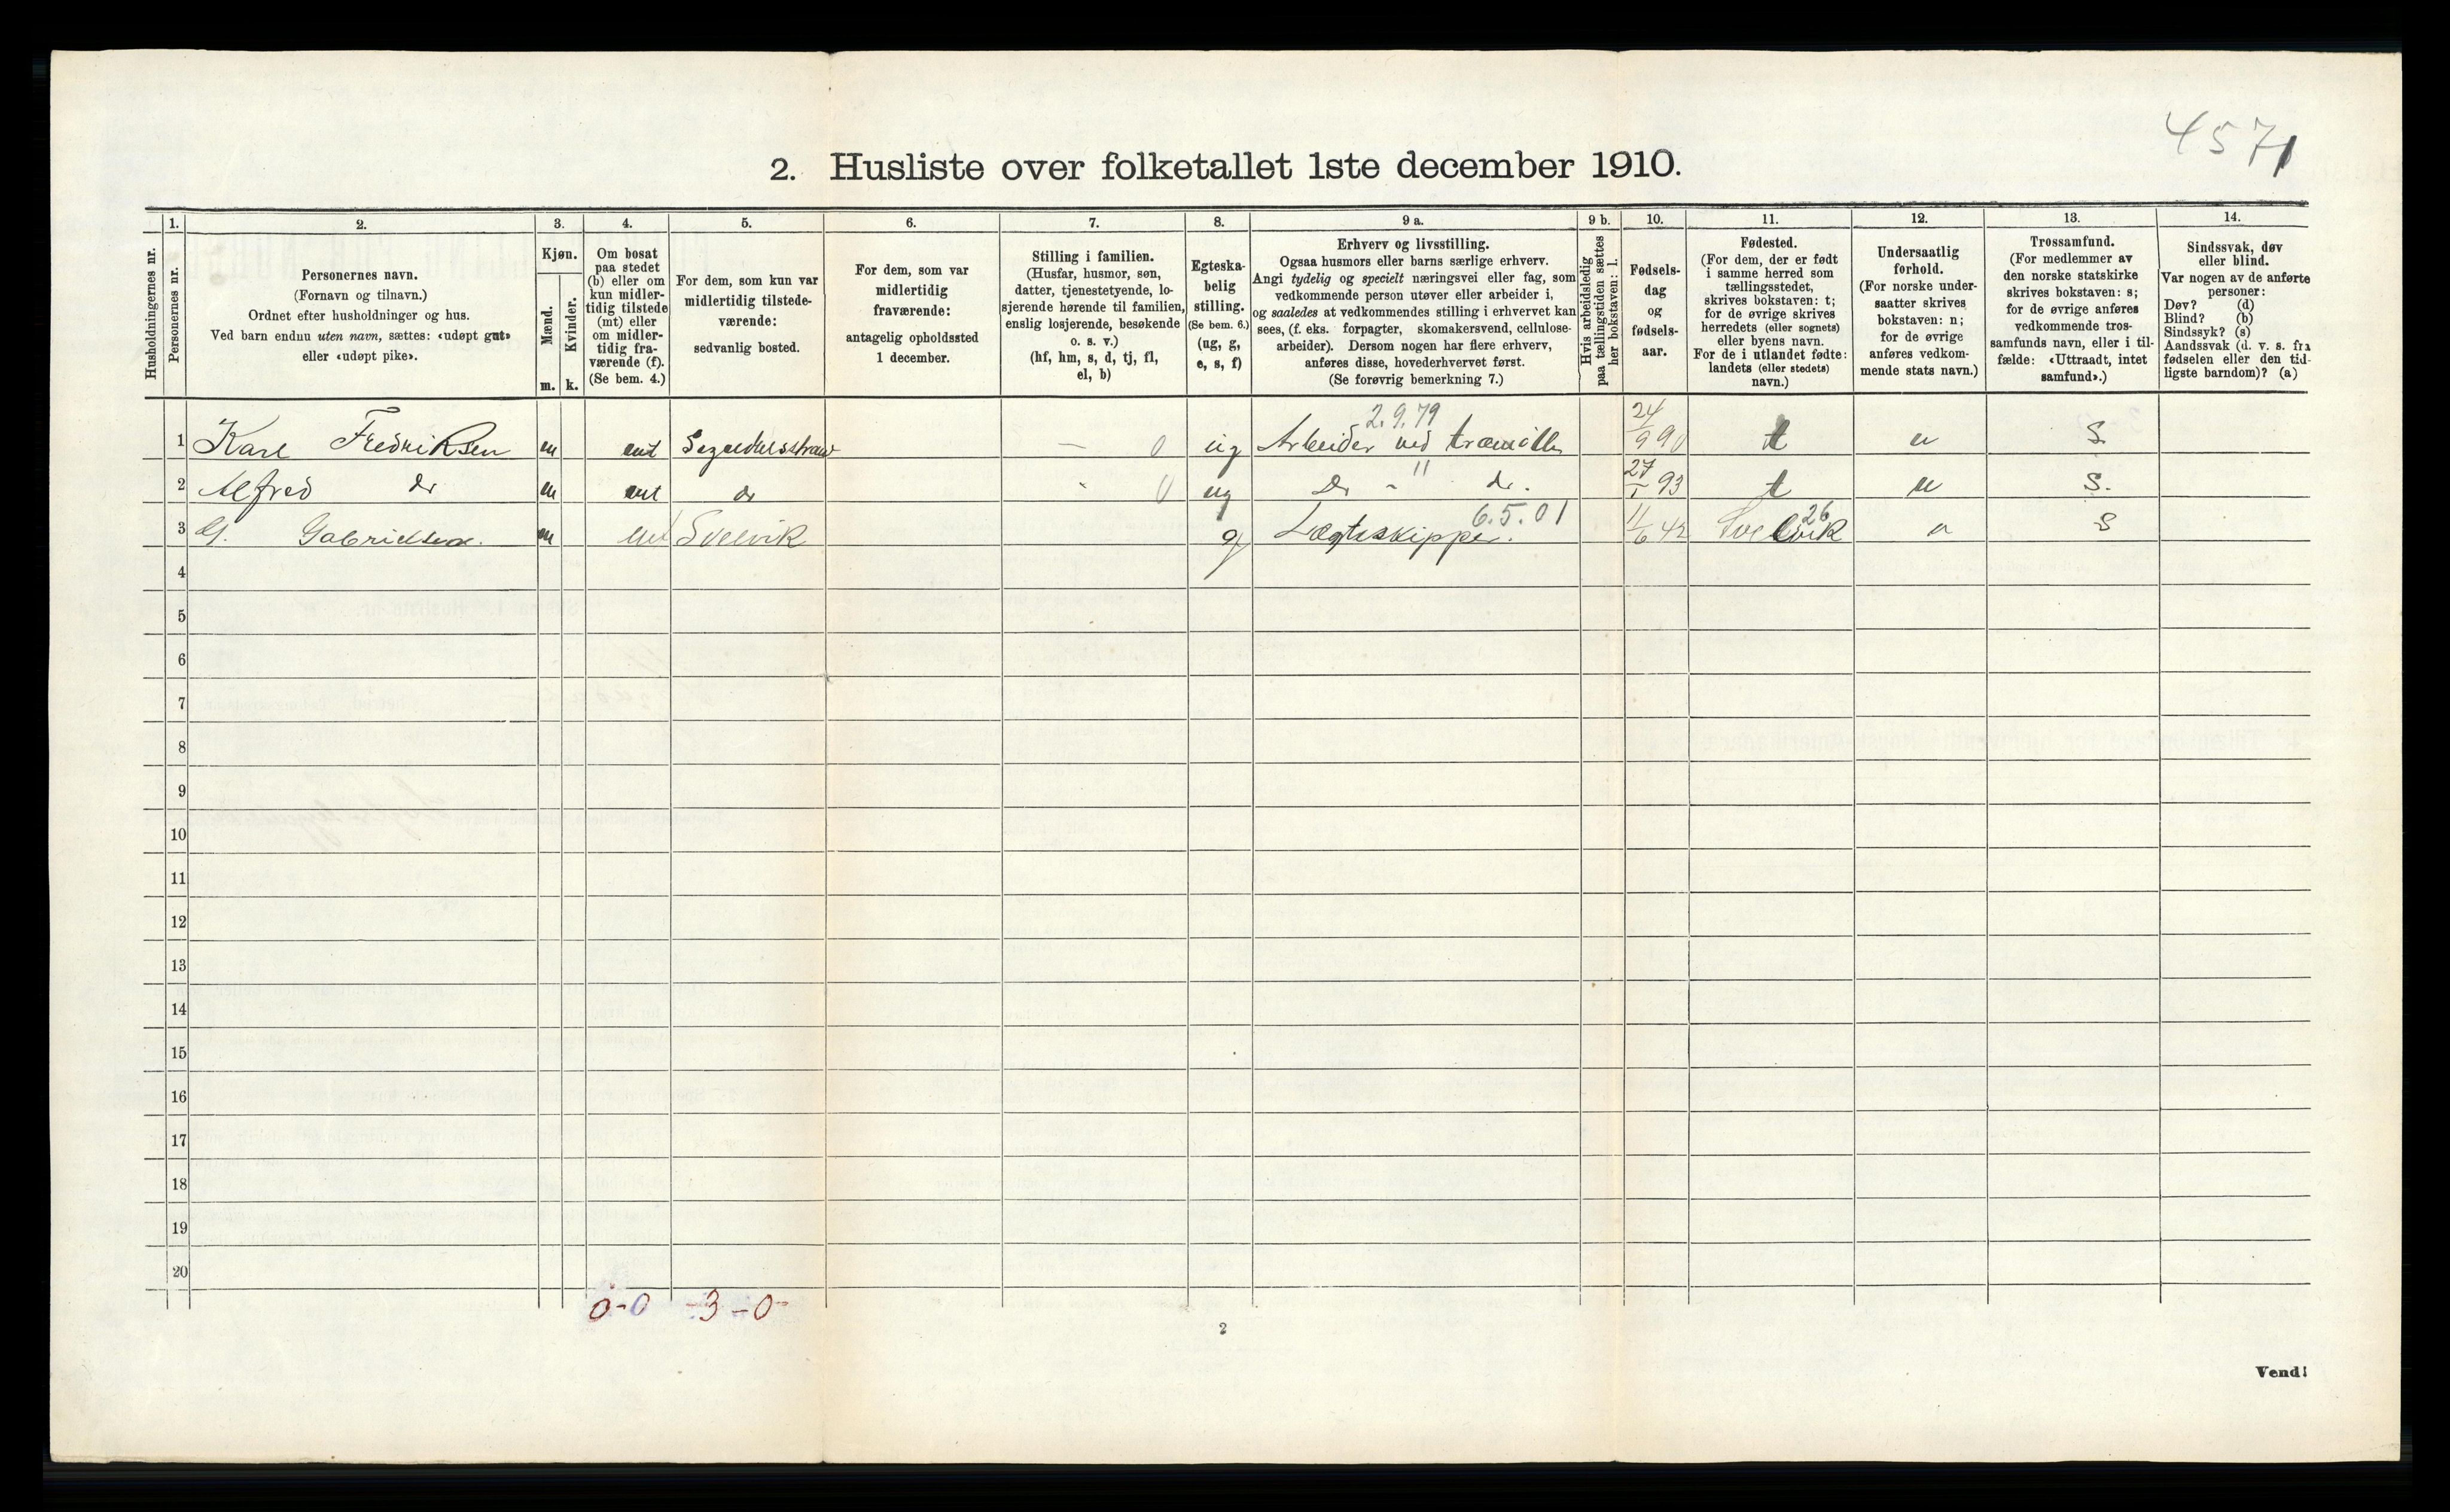 4571
2. Husliste over folketallet 1ste december 1910.
Husholdningernes nr.
1.
Personernes nr.
2.
Personernes navn.
(Fornavn og tilnavn.)
Ordnet efter husholdninger og hus.
Ved barn endnu uten navn, sættes: «udøpt gut»
eller «udøpt pike».
3.
Kjøn.
Mænd.
Kvinder.
m. k.
4.
Om bosat
paa stedet
(b) eller om
kun midler-
tidig tilstede
(mt) eller
om midler-
tidig fra-
værende (f).
(Se bem. 4.)
5.
For dem, som kun var
midlertidig tilstede-
værende:
sedvanlig bosted.
6.
For dem, som var
midlertidig
fraværende:
antagelig opholdssted
1 december.
7.
Stilling i familien.
(Husfar, husmor, søn,
datter, tjenestetyende, lo-
sjerende hørende til familien,
enslig losjerende, besøkende
o. s. v.)
(hf, hm, s, d, tj, fl,
el, b)
8.
Egteska-
belig
stilling.
(Se bem. 6.)
(ug, g,
e, s, f)
9 a.
Erhverv og livsstilling.
Ogsaa husmors eller barns særlige erhverv.
Angi tydelig og specielt næringsvei eller fag, som
vedkommende person utøver eller arbeider i,
og saaledes at vedkommendes stilling i erhvervet kan
sees, (f. eks. forpagter, skomakersvend, cellulose-
arbeider). Dersom nogen har flere erhverv,
anføres disse, hovederhvervet først.
(Se forøvrig bemerkning 7.)
9 b.
Hvis arbeidsledig
paa tællingstiden sættes
her bokstaven: l.
10.
Fødsels-
dag
og
fødsels-
aar.
11.
Fødested.
(For dem, der er født
i samme herred som
tællingsstedet,
skrives bokstaven: t;
for de øvrige skrives
herredets (eller sognets)
eller byens navn.
For de i utlandet fødte:
landets (eller stedets)
navn.)
12.
Undersaatlig
forhold.
(For norske under-
saatter skrives
bokstaven: n;
for de øvrige
anføres vedkom-
mende stats navn.)
13.
Trossamfund.
(For medlemmer av
den norske statskirke
skrives bokstaven: s;
for de øvrige anføres
vedkommende tros-
samfunds navn, eller i til-
fælde: «Uttraadt, intet
samfund».)
14.
Sindssvak, døv
eller blind.
Var nogen av de anførte
personer:
Døv? (d)
Blind? (b)
Sindssyk? (s)
Aandssvak (d. v. s. fra
fødselen eller den tid-
ligste barndom)? (a)
2.9.79
1 Karl Fredriksen m mt - 0 ug Arbeider ved 24/9 90 t n S
2 Alfred do m mt do 0 ug Do " do. 27/1 93 t n S.
6.5.01 26
3 G. Gabrielsen. m mt Svelvik g Lægteskipper. 11/6 42 Svelvik n S
4
5
6
7
8
9
10
11
12
13
14
15
16
17
18
19
20
0-0 -3-0-
2
Vend!